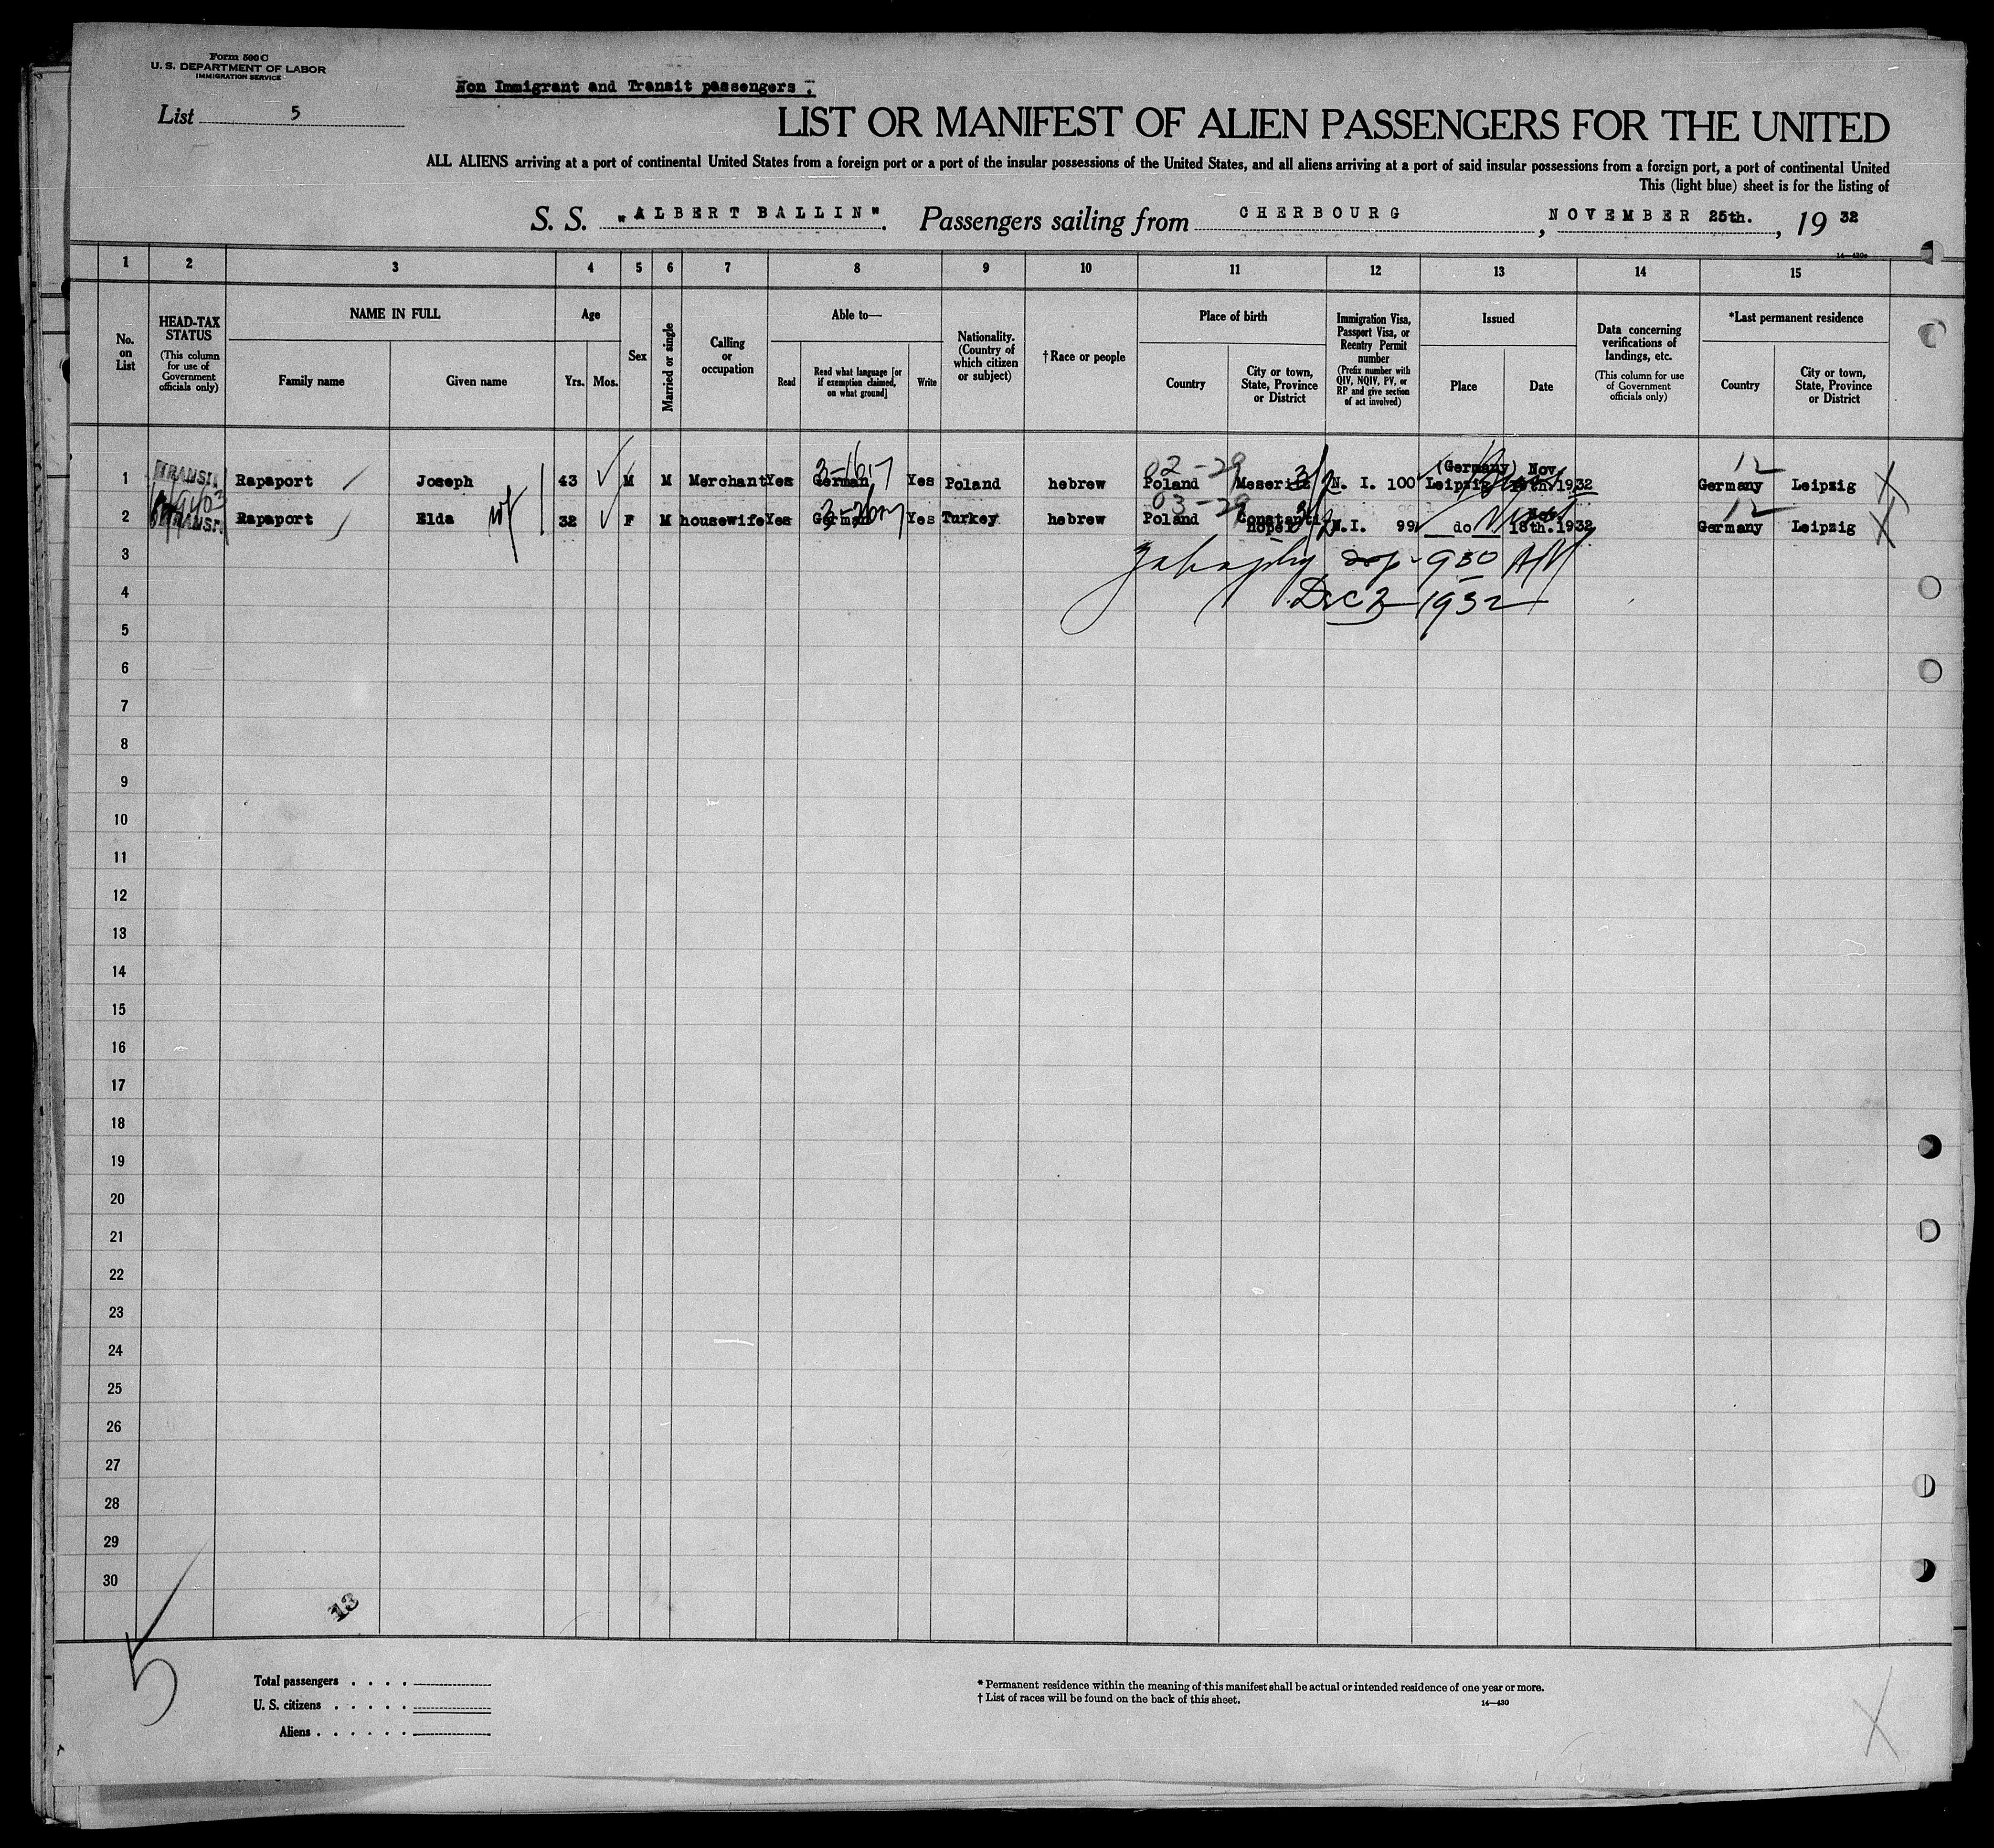 Form 500 C
U. S. DEPARTMENT OF LABOR
IMMIGRATION SERVICE
Non Immigrant and Transit passengers.
List 5
LIST OR MANIFEST OF ALIEN PASSENGERS FOR THE UNITED
ALL ALIENS arriving at a port of continental United States from a foreign port or a port of the insular possessions of the United States, and all aliens arriving at a port of said insular possessions from a foreign port, a port of continental United
This (light blue) sheet is for the listing of
S. S. "ALBERT BALLIN". Passengers sailing from CHERBOURG, NOVEMBER 25th., 19 32
14—430a
1 2 3 4 5 6 7 8 9 10 11 12 13 14 15
No. on List
HEAD-TAX STATUS
(This column for use of Government officials only)
NAME IN FULL
Family name
Given name
Age
Yrs. Mos.
Sex
Married or single
Calling or occupation
Able to—
Read
Read what language [or if exemption claimed, on what ground]
Write
Nationality. (Country of which citizen or subject)
†Race or people
Place of birth
Country
City or town, State, Province or District
Immigration Visa, Passport Visa, or Reentry Permit number
(Prefix number with QIV, NQIV, PV, or RP and give section of act involved)
Issued
Place
Date
Data concerning verifications of landings, etc.
(This column for use of Government officials only)
*Last permanent residence
Country
City or town, State, Province or District
02-29 (Germany) Nov. 12
1 TRANSIT Rapaport Joseph 43 M M Merchant Yes German Yes Poland hebrew Poland Meseritz 3/2 N. I. 100 Leipzig 1932 Germany Leipzig X
03-29 Nov. 12
2 TRANSIT Rapaport Elda wf 32 F M housewife Yes German Yes Turkey hebrew Poland Constantinopel 3/2 N.I. 99 do 18th.1932 Germany Leipzig X
3 930 AM
4 Dec 3 1932
5
6
7
8
9
10
11
12
13
14
15
16
17
18
19
20
21
22
23
24
25
26
27
28
29
30
13
5
Total passengers
U. S. citizens
Aliens
* Permanent residence within the meaning of this manifest shall be actual or intended residence of one year or more.
† List of races will be found on the back of this sheet.
14—430
X